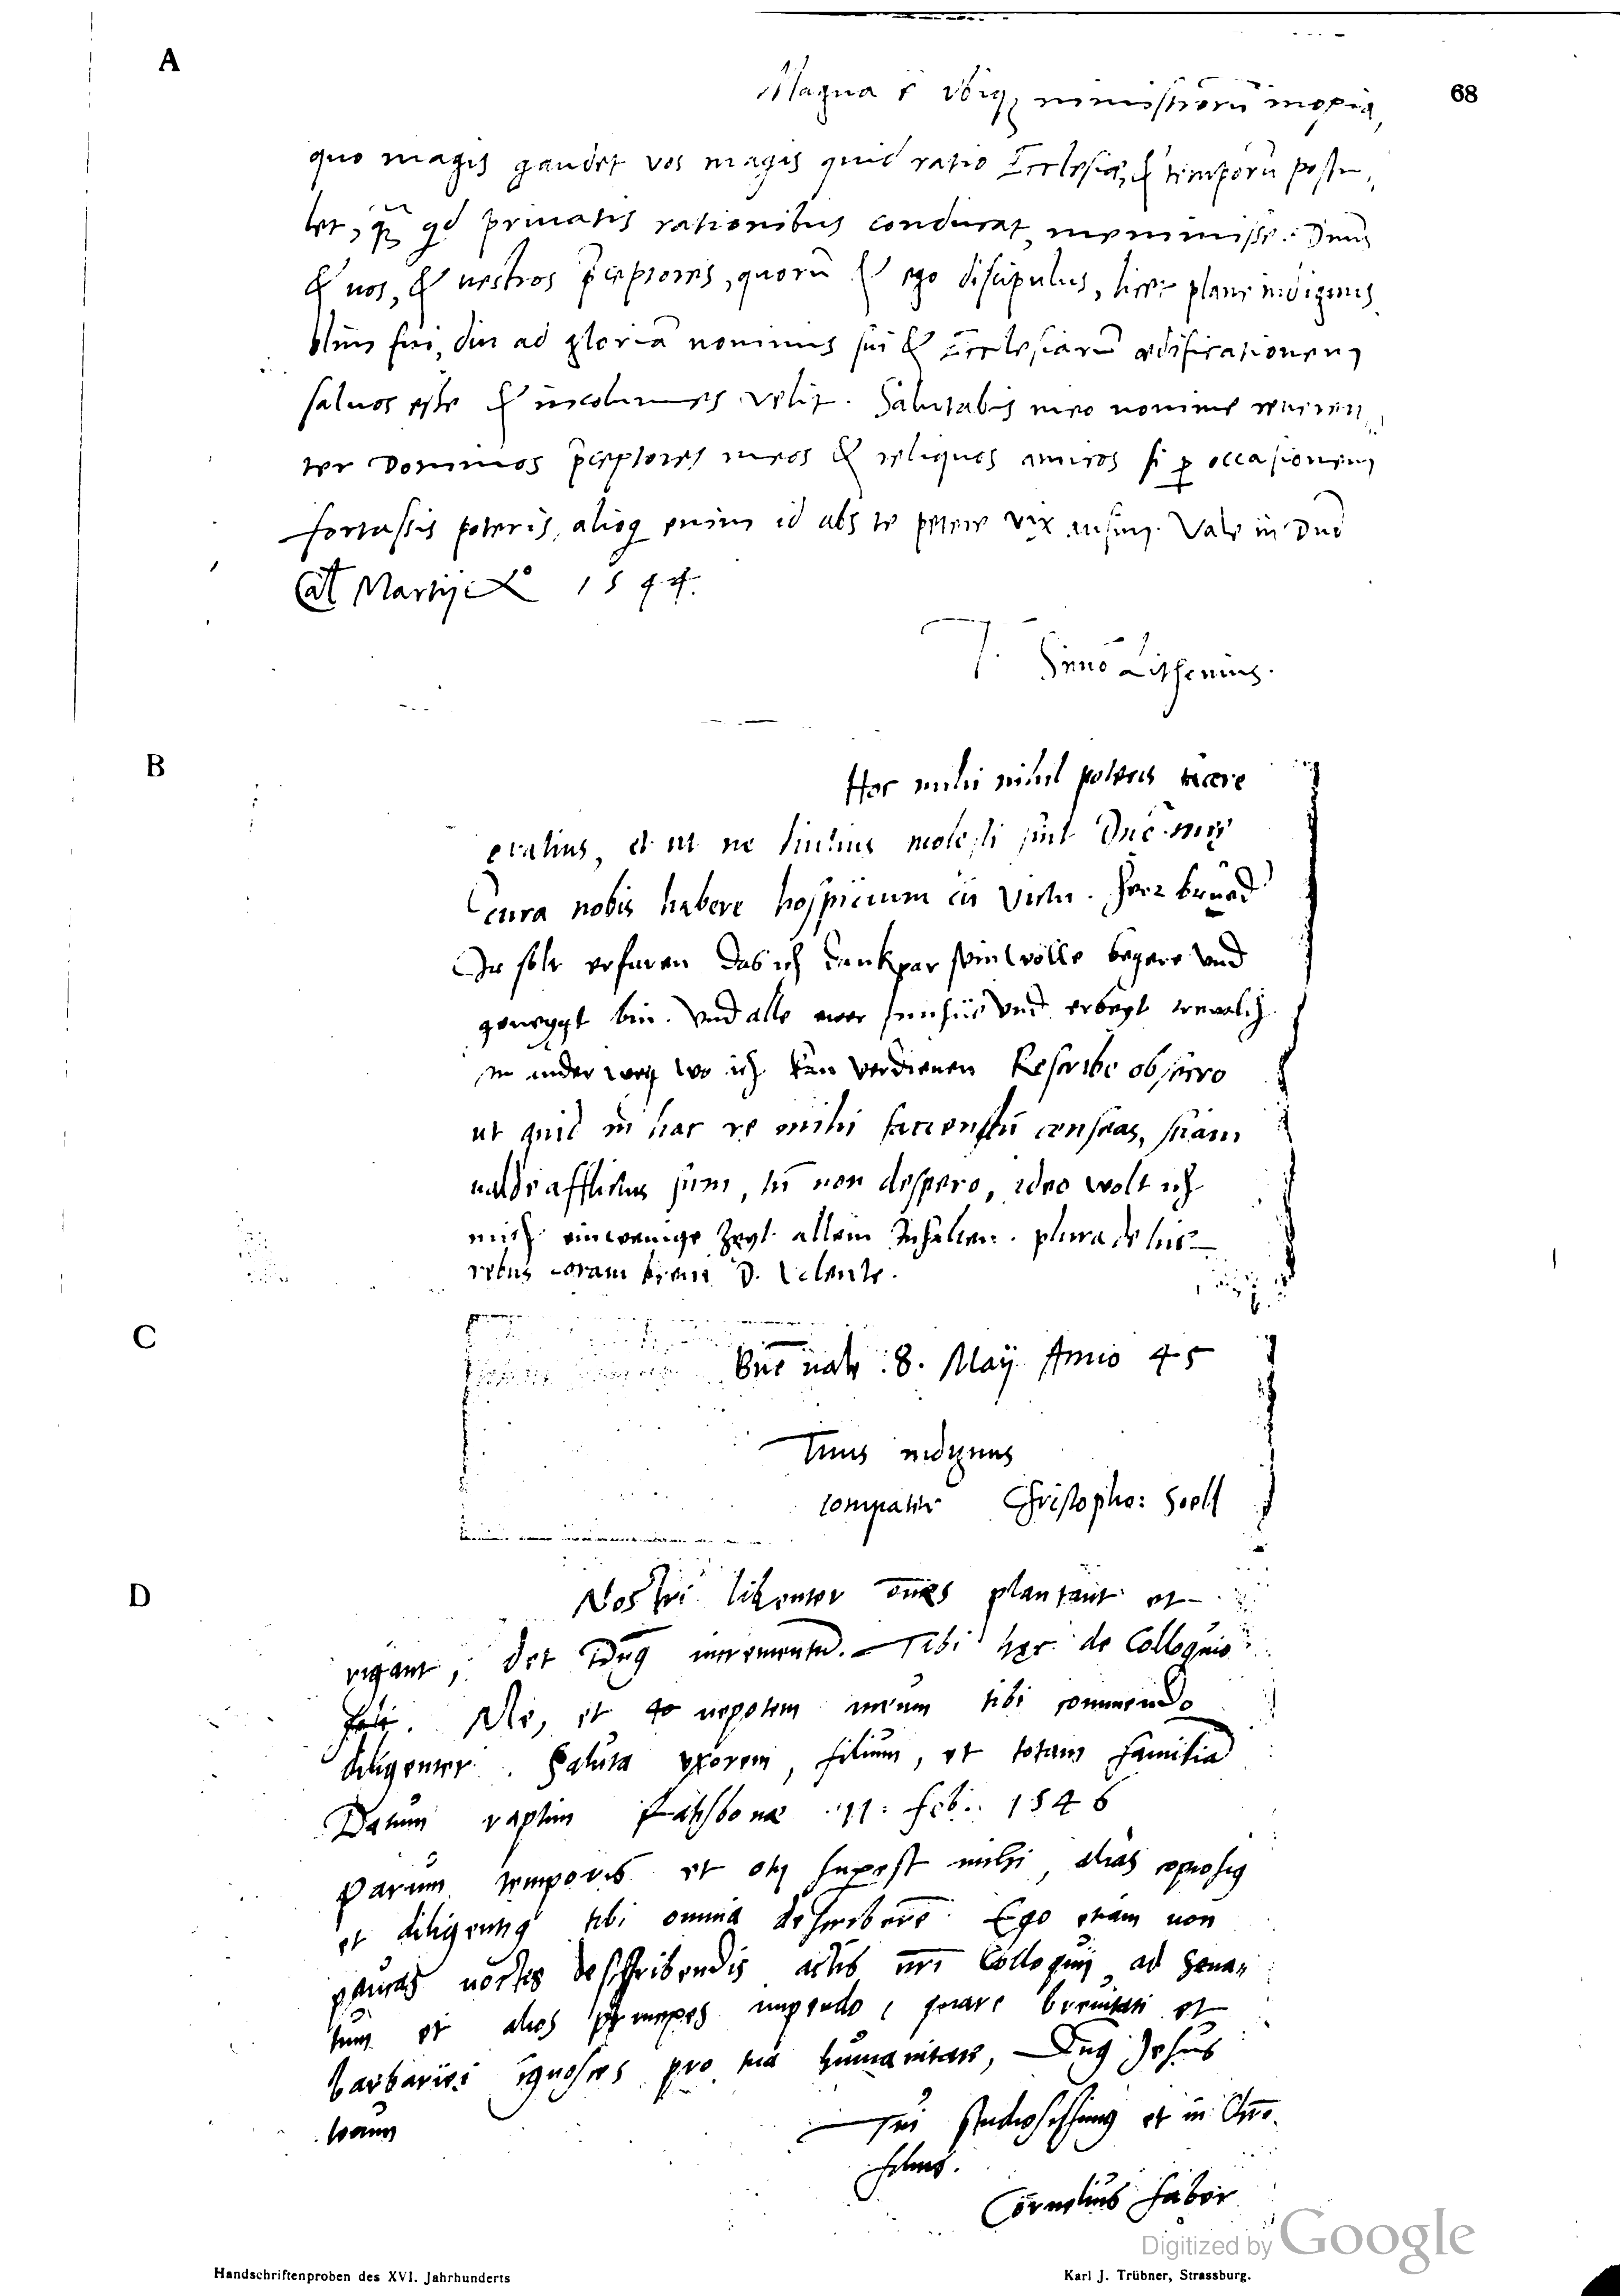 A
68
Magna ē vbiq₃ ministrorū inopia,
quo magis gaudet vos magis quid ratio Ecclesiæ, & temporū postu-
let, q̄ꝫ qd priuatis rationibus conducat, meminisse. Dñus
& uos, & uestros p̄ceptores, quorū & ego discipulus, licet plane indignus
olim fui, diu ad gloriā nominis sui & Ecclesiarū ædificationem
saluos esse & incolumes velit. Salutabis meo nomine reueren-
ter Dominos p̄ceptores meos & reliquos amicos si ꝑ occasionem
fortassis poteris, alioq enim id abs te petere vix ausim. Vale in Dnō
Cal Martij 1544.
T. Simō Lithonius.
B
Hoc mihi nihil poteris facere
gratius, et ut ne diutius molesti sint Dnē my
Cura nobis habere hospicium cū victu. Herr
Ir solt erfaren das ich dankpar sein wölle begere und
geneygt bin. Vnd alle ewer vnd erbeyt trewlich
in ander weg wo ich kan verdienen Rescribe obsecro
ut quid in hac re mihi faciendū censeas, etiam
ualde afflictus sum, tn̄ non despero, ideo wolt ich
mich ein wenige zeyt allein Inhalten. plura de his
rebus coram breui D. volente.
C
Bn̄e uale .8. Maÿ Anno 45
Tuus indignus
compater Christopho: Soell
D
Nostri libenter om̄es plantant et
rigant, det Dn̄s incrementū. Tibi hęc de Colloquio
soli. Me, et nepotem meum tibi commendo
diligenter. Saluta vxorem, filium, et totam familiā
Datum raptim Ratisbonæ .11. Feb. 1546
Parum temporis et otij supest mihi, alias copiosiꝰ
et diligentiꝰ tibi omnia describere. Ego etiam non
paucas noctes describendis actis nr̄i Colloquij, ad Sena-
tum et alios principes impendo, quare breuitati et
barbariei ignosces pro tua humanitate, Dn̄s Jesus
tecum
Tui studiosissimus et in Chr̄o
filius.
Cornelius Faber
Digitized by Google
Handschriftenproben des XVI. Jahrhunderts
Karl J. Trübner, Strassburg.